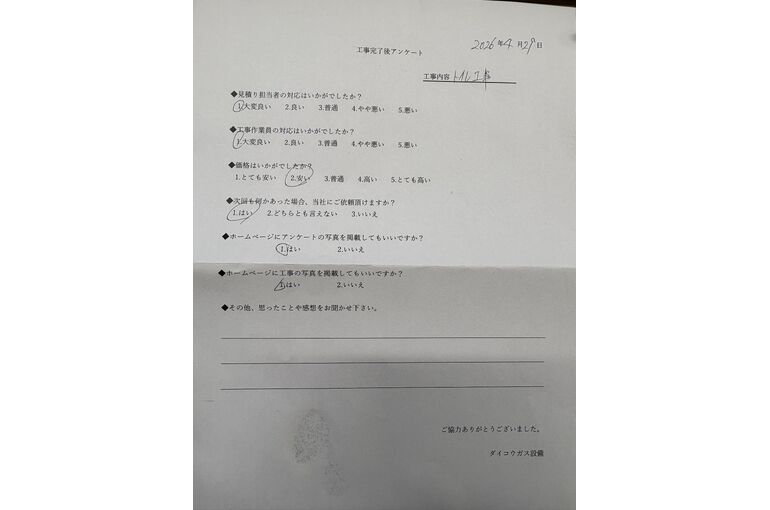 2026年4月29日
工事完了後アンケート
工事内容 トイレ工事
◆見積り担当者の対応はいかがでしたか？
1.大変良い 2.良い 3.普通 4.やや悪い 5.悪い
◆工事作業員の対応はいかがでしたか？
1.大変良い 2.良い 3.普通 4.やや悪い 5.悪い
◆価格はいかがでしたか？
1.とても安い 2.安い 3.普通 4.高い 5.とても高い
◆次回も何かあった場合、当社にご依頼頂けますか？
1.はい 2.どちらとも言えない 3.いいえ
◆ホームページにアンケートの写真を掲載してもいいですか？
1.はい 2.いいえ
◆ホームページに工事の写真を掲載してもいいですか？
1.はい 2.いいえ
◆その他、思ったことや感想をお聞かせ下さい。
ご協力ありがとうございました。
ダイコウガス設備